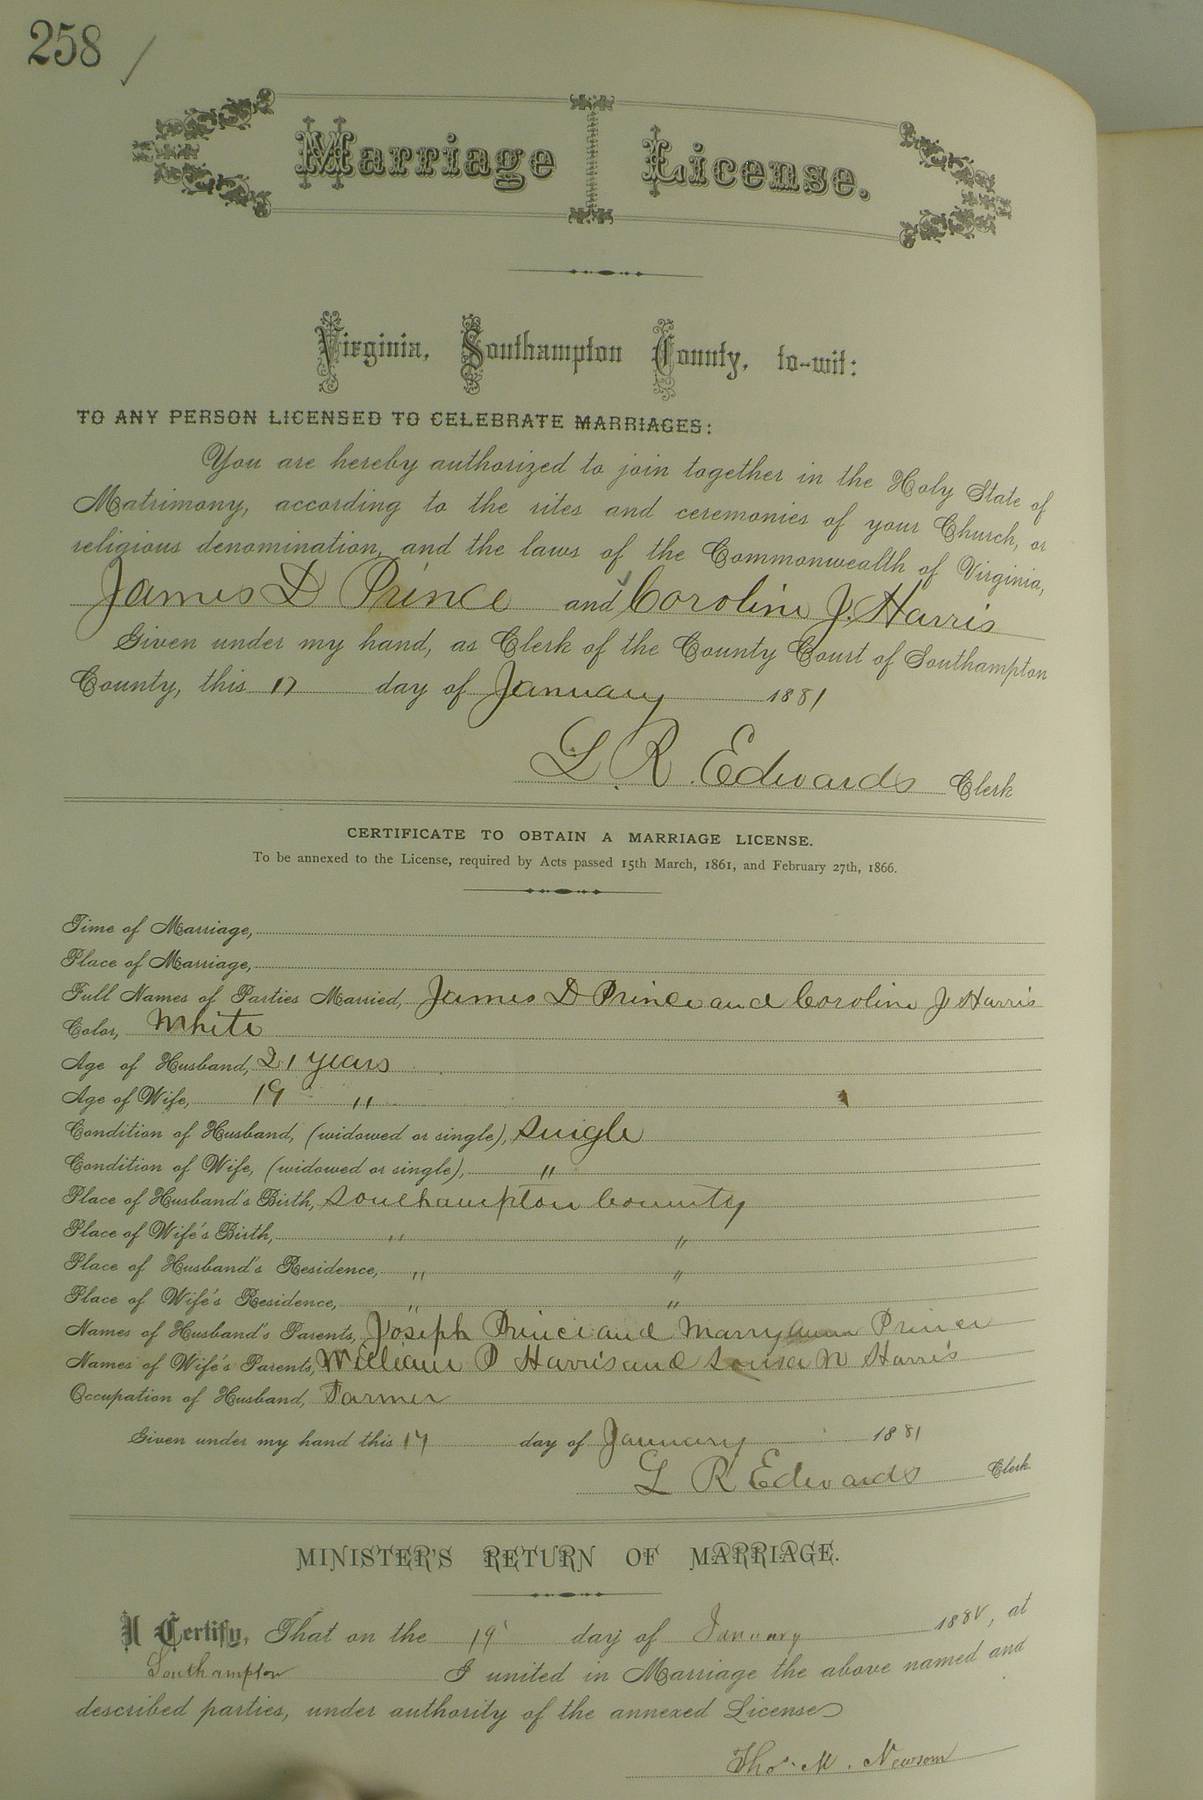 258
Marriage License.
Virginia, Southampton County, to-wit:
TO ANY PERSON LICENSED TO CELEBRATE MARRIAGES:
You are hereby authorized to join together in the Holy State of
Matrimony, according to the rites and ceremonies of your Church, or
religious denomination, and the laws of the Commonwealth of Virginia,
James D Prince and Caroline J. Harris
Given under my hand, as Clerk of the County Court of Southampton
County, this 17 day of January 1881
L. R. Edwards Clerk
CERTIFICATE TO OBTAIN A MARRIAGE LICENSE.
To be annexed to the License, required by Acts passed 15th March, 1861, and February 27th, 1866.
Time of Marriage,
Place of Marriage,
Full Names of Parties Married, James D Prince and Caroline J Harris
Color, White
Age of Husband, 21 years
Age of Wife, 19 "
Condition of Husband, (widowed or single), Single
Condition of Wife, (widowed or single), "
Place of Husband's Birth, Southampton County
Place of Wife's Birth, " "
Place of Husband's Residence, " "
Place of Wife's Residence, " "
Names of Husband's Parents, Joseph Prince and Mary Ann Prince
Names of Wife's Parents, William P Harris and Louisa N Harris
Occupation of Husband, Farmer
Given under my hand this 17 day of January 1881
L R Edwards Clerk
MINISTER'S RETURN OF MARRIAGE.
I Certify, That on the 19 day of January 188, at
Southampton I united in Marriage the above named and
described parties, under authority of the annexed License
Tho. M. Newsom